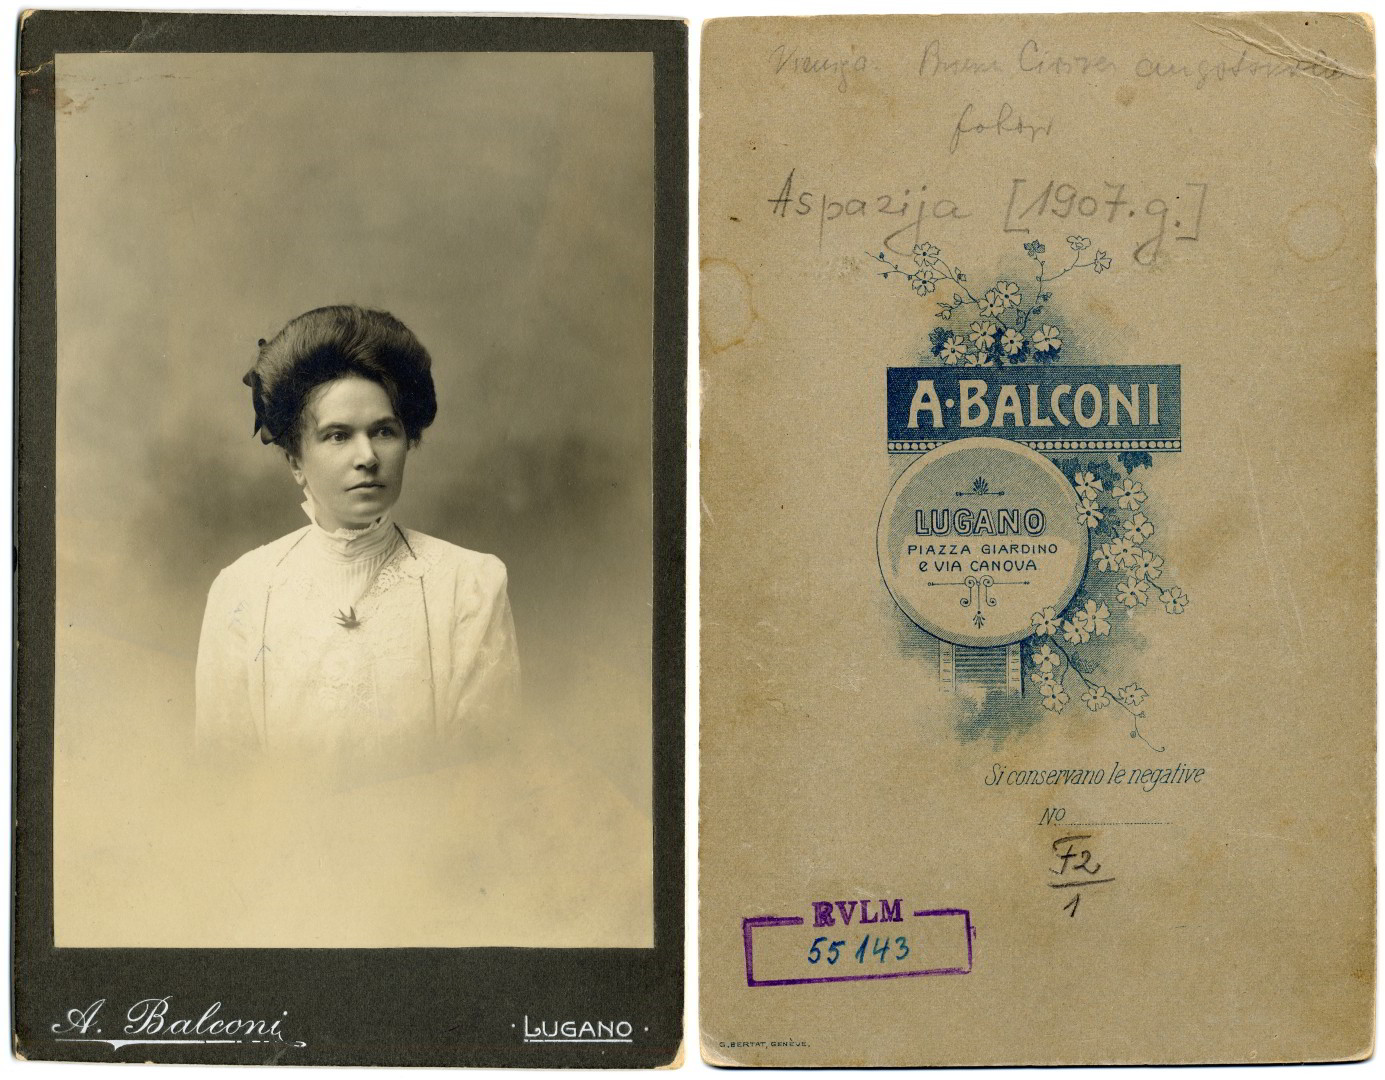 A. Balconi
· LUGANO ·
Aspazija [1907.g.]
A·BALCONI
LUGANO
PIAZZA GIARDINO
e VIA CANOVA
Si conservano le negative
No
F2
1
RVLM
55143
G. BERTAT, GENÈVE.